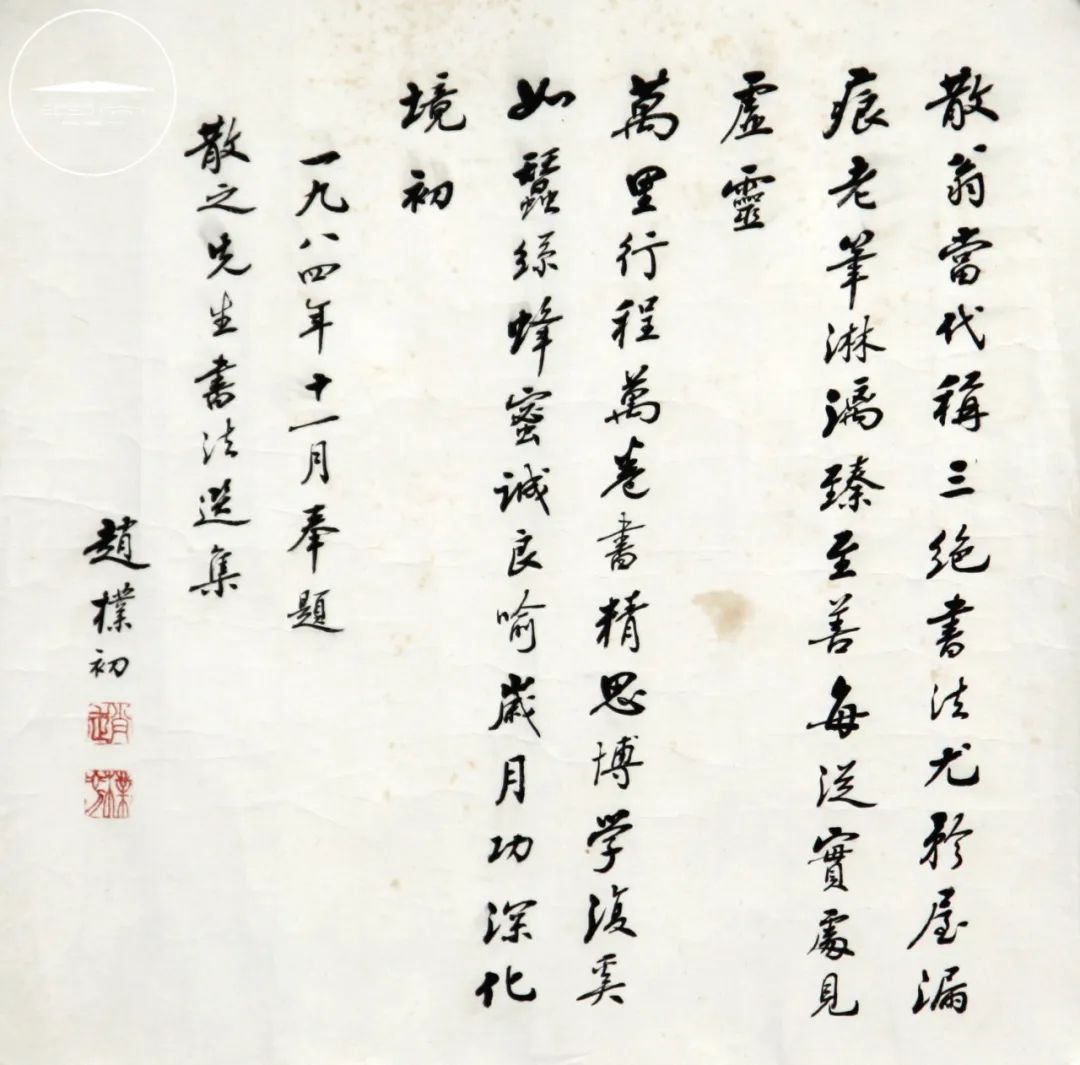 散翁當代稱三絕書法尤矜屋漏
痕老筆淋漓臻至善每從實處見
虛靈
萬里行程萬卷書精思博学復奚
如蠶絲蜂蜜誠良喻歲月功深化
境初
一九八四年十一月奉題
散之先生書法選集
趙樸初
趙
樸初